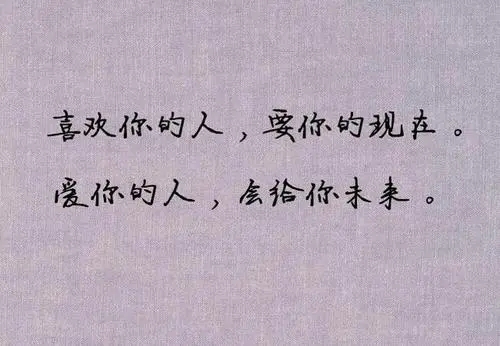 喜欢你的人，要你的现在。
爱你的人，会给你未来。